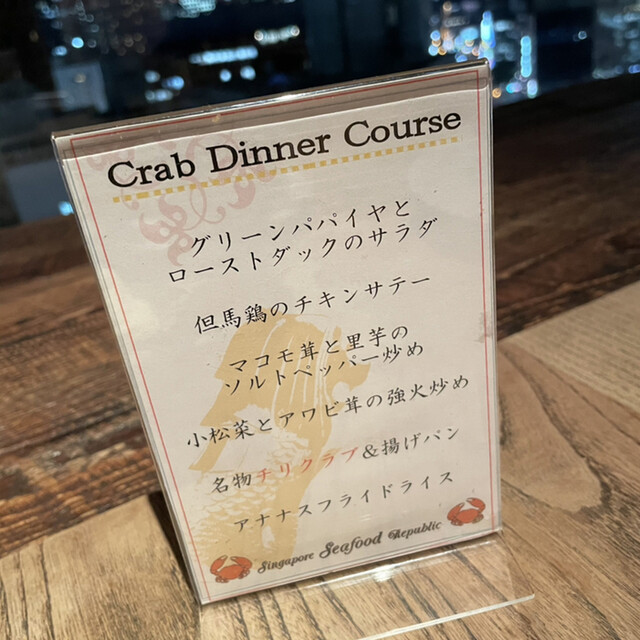 Crab Dinner Course
グリーンパパイヤと
ローストダックのサラダ
但馬鶏のチキンサテー
マコモ茸と里芋の
ソルトペッパー炒め
小松菜とアワビ茸の強火炒め
名物チリクラブ&揚げパン
アナナスフライドライス
Singapore Seafood Republic